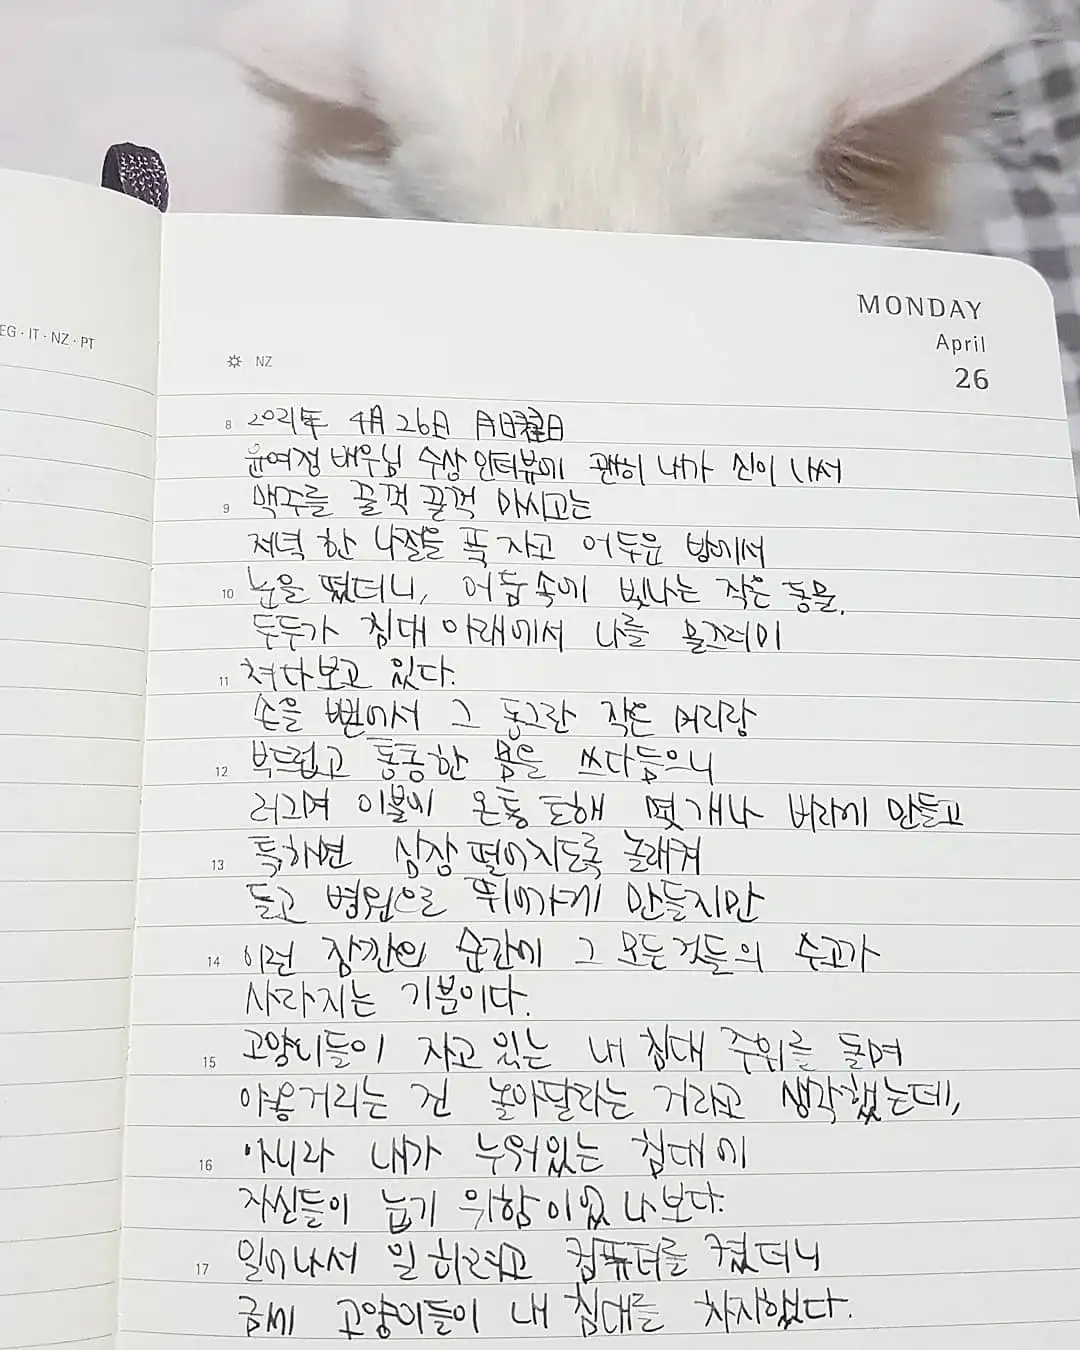 EG · IT · NZ · PT
MONDAY
April
26
NZ
8 2021年 4月 26日 月日曜日
윤여정 배우님 수상 인터뷰에 괜히 내가 신이 나서
9 맥주를 꿀꺽 꿀꺽 마시고는
저녁 한 나절을 푹 자고 어두운 방에서
10 눈을 떴더니, 어둠 속에 빛나는 작은 동물,
두두가 침대 아래에서 나를 물끄러미
11 쳐다보고 있다.
손을 뻗어서 그 동그란 작은 머리랑
12 부드럽고 통통한 몸을 쓰다듬으니
러그며 이불에 온통 토해 몇 개나 버리게 만들고
13 툭하면 심장 떨어지도록 놀래켜
들고 병원으로 뛰어가게 만들지만
14 이런 잠깐의 순간에 그 모든것들의 수고가
사라지는 기분이다.
15 고양이들이 자고 있는 내 침대 주위를 돌며
야옹거리는 건 놀아달라는 거라고 생각했는데,
16 아니라 내가 누워있는 침대에
자신들이 눕기 위함이었나보다.
17 일어나서 일 하려고 컴퓨터를 켰더니
금세 고양이들이 내 침대를 차지했다.